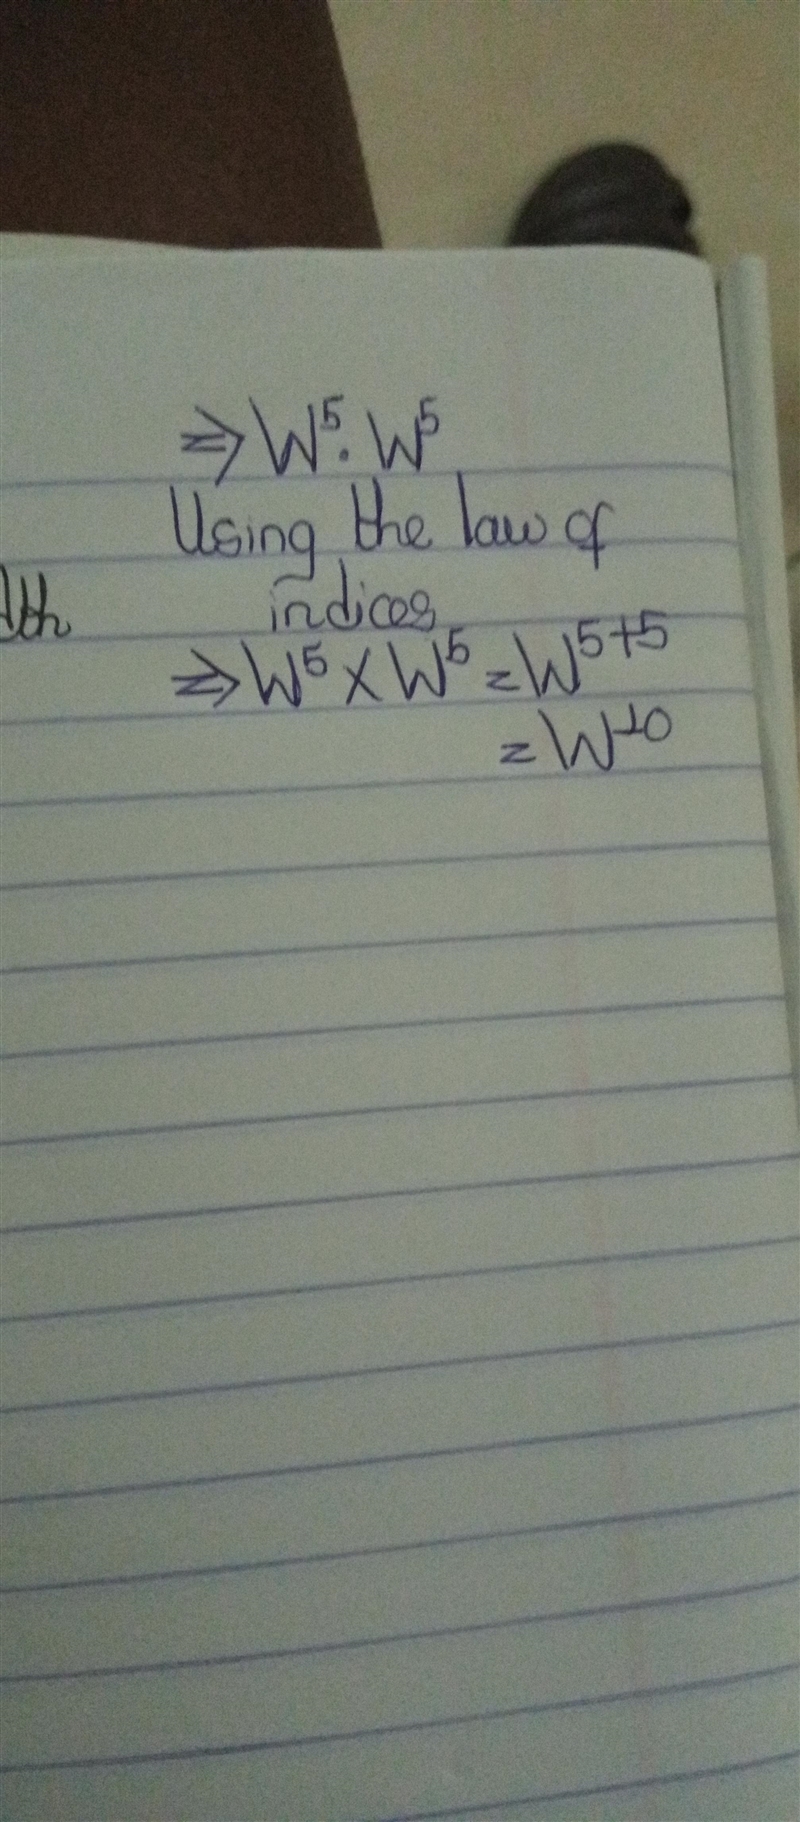 ⇒ W⁵ · W⁵
Using the law of
indices
⇒ W⁵ × W⁵ = W⁵⁺⁵
= W¹⁰